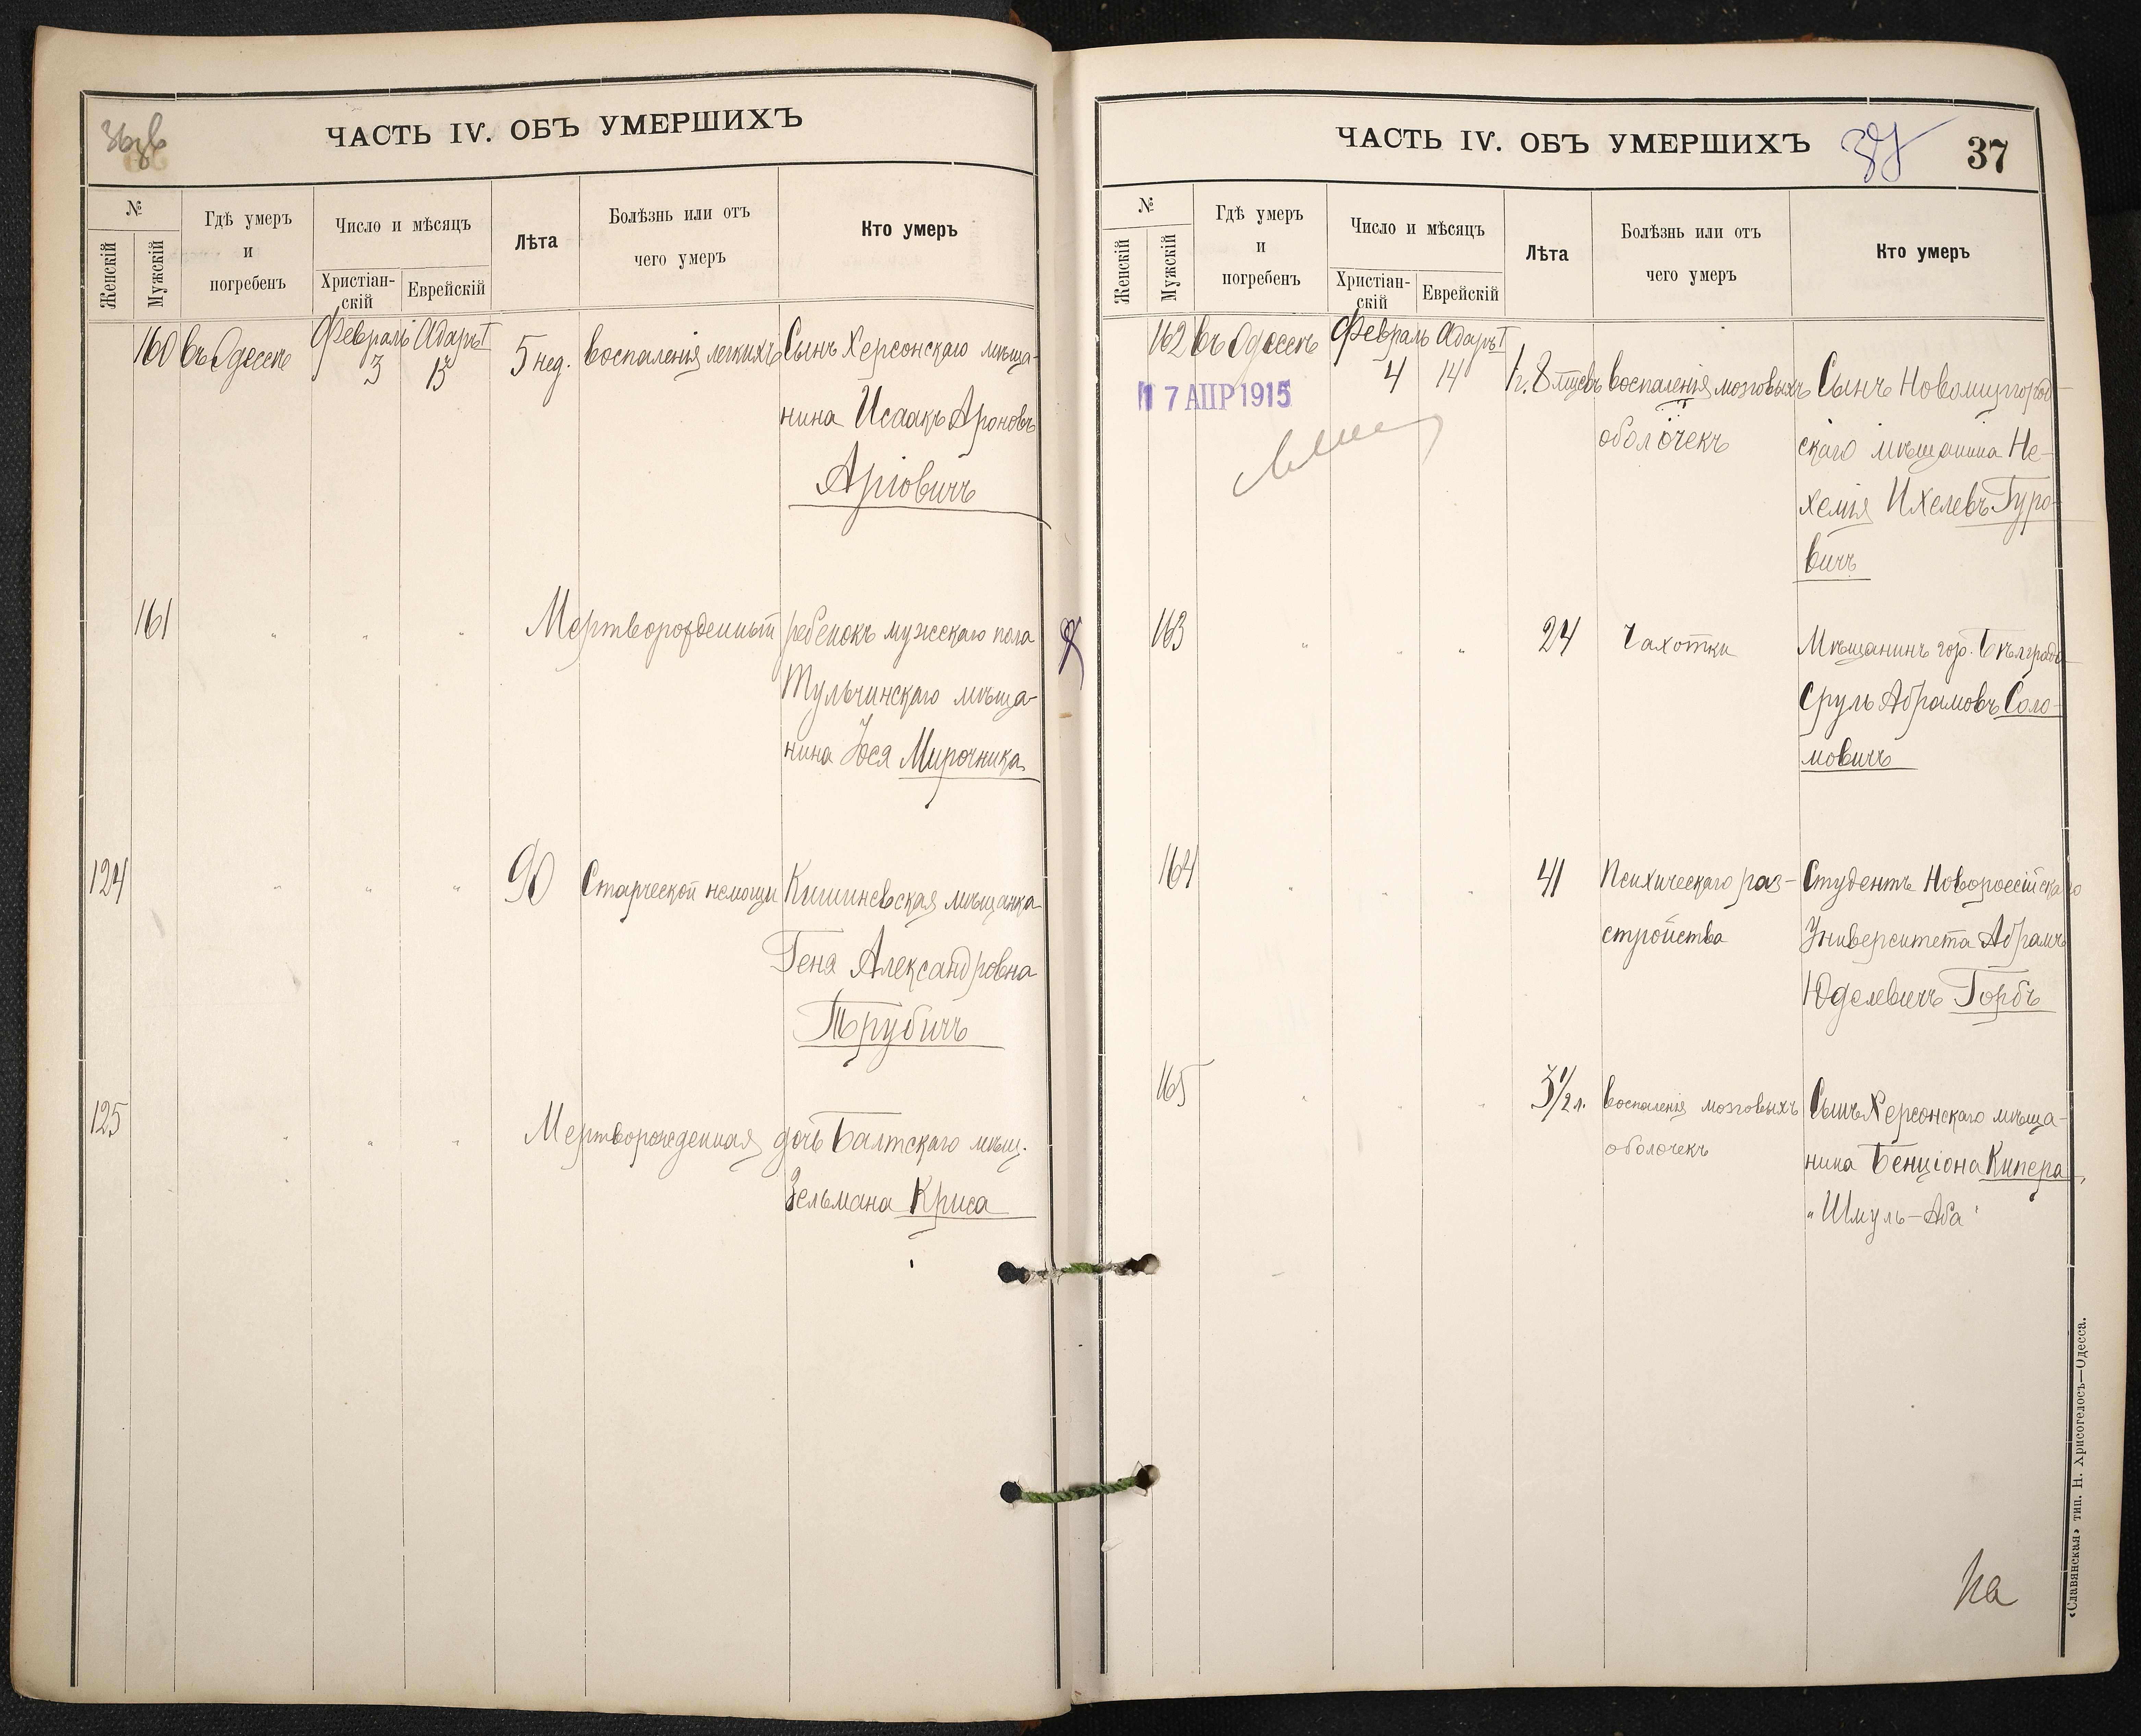 ЧАСТЬ IV. ОБЪ УМЕРШИХЪ
№
Женскій
Мужскій
Гдѣ умеръ
и
погребенъ
Число и мѣсяцъ
Христіан-
скій
Еврейскій
Лѣта
Болѣзнь или отъ
чего умеръ
Кто умеръ
160 въ Одессѣ Февраль 3 Адаръ I 13 5 нед. воспаленія легкихъ Сынъ Херсонскаго мѣща-
нина Исаакъ Ароновъ
Аріовичъ
161 " " " Мертворожденный ребенокъ мужескаго пола
Тульчинскаго мѣща-
нина Іося Мирочника
124 " " " 90 Старческой немощи Кишиневская мѣщанка
Геня Александровна
Трубичъ
125 " " " Мертворожденная дочь Балтскаго мѣщ.
Зельмана Криса
ЧАСТЬ IV. ОБЪ УМЕРШИХЪ
37
№
Женскій
Мужскій
Гдѣ умеръ
и
погребенъ
Число и мѣсяцъ
Христіан-
скій
Еврейскій
Лѣта
Болѣзнь или отъ
чего умеръ
Кто умеръ
162 въ Одессѣ Февраль 4 Адаръ I 14 1 г. 8 мѣсяцевъ воспаленія мозговыхъ Сынъ Новомиргород-
17 АПР 1915
оболочекъ скаго мѣщанина Не-
хемія Ихелевъ Гуро-
вичъ
163 " " " 24 Чахотки Мѣщанинъ гор. Бѣлграда
Сруль Абрамовъ Соло-
мовичъ
164 " " " 41 Психическаго раз- Студентъ Новороссійскаго
стройства Университета Абрамъ
Юделевичъ Горбъ
165 " " " 3 1/2 л. воспаленія мозговыхъ Сынъ Херсонскаго мѣща-
оболочекъ нина Бенціона Кипера,
"Шмуль-Аба"
На
«Славянская» тип. Н. Хрисогелосъ—Одесса.